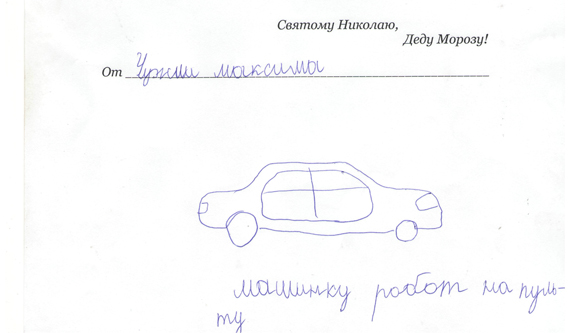 Святому Николаю,
Деду Морозу!
От максима
машинку робот на пуль-
ту